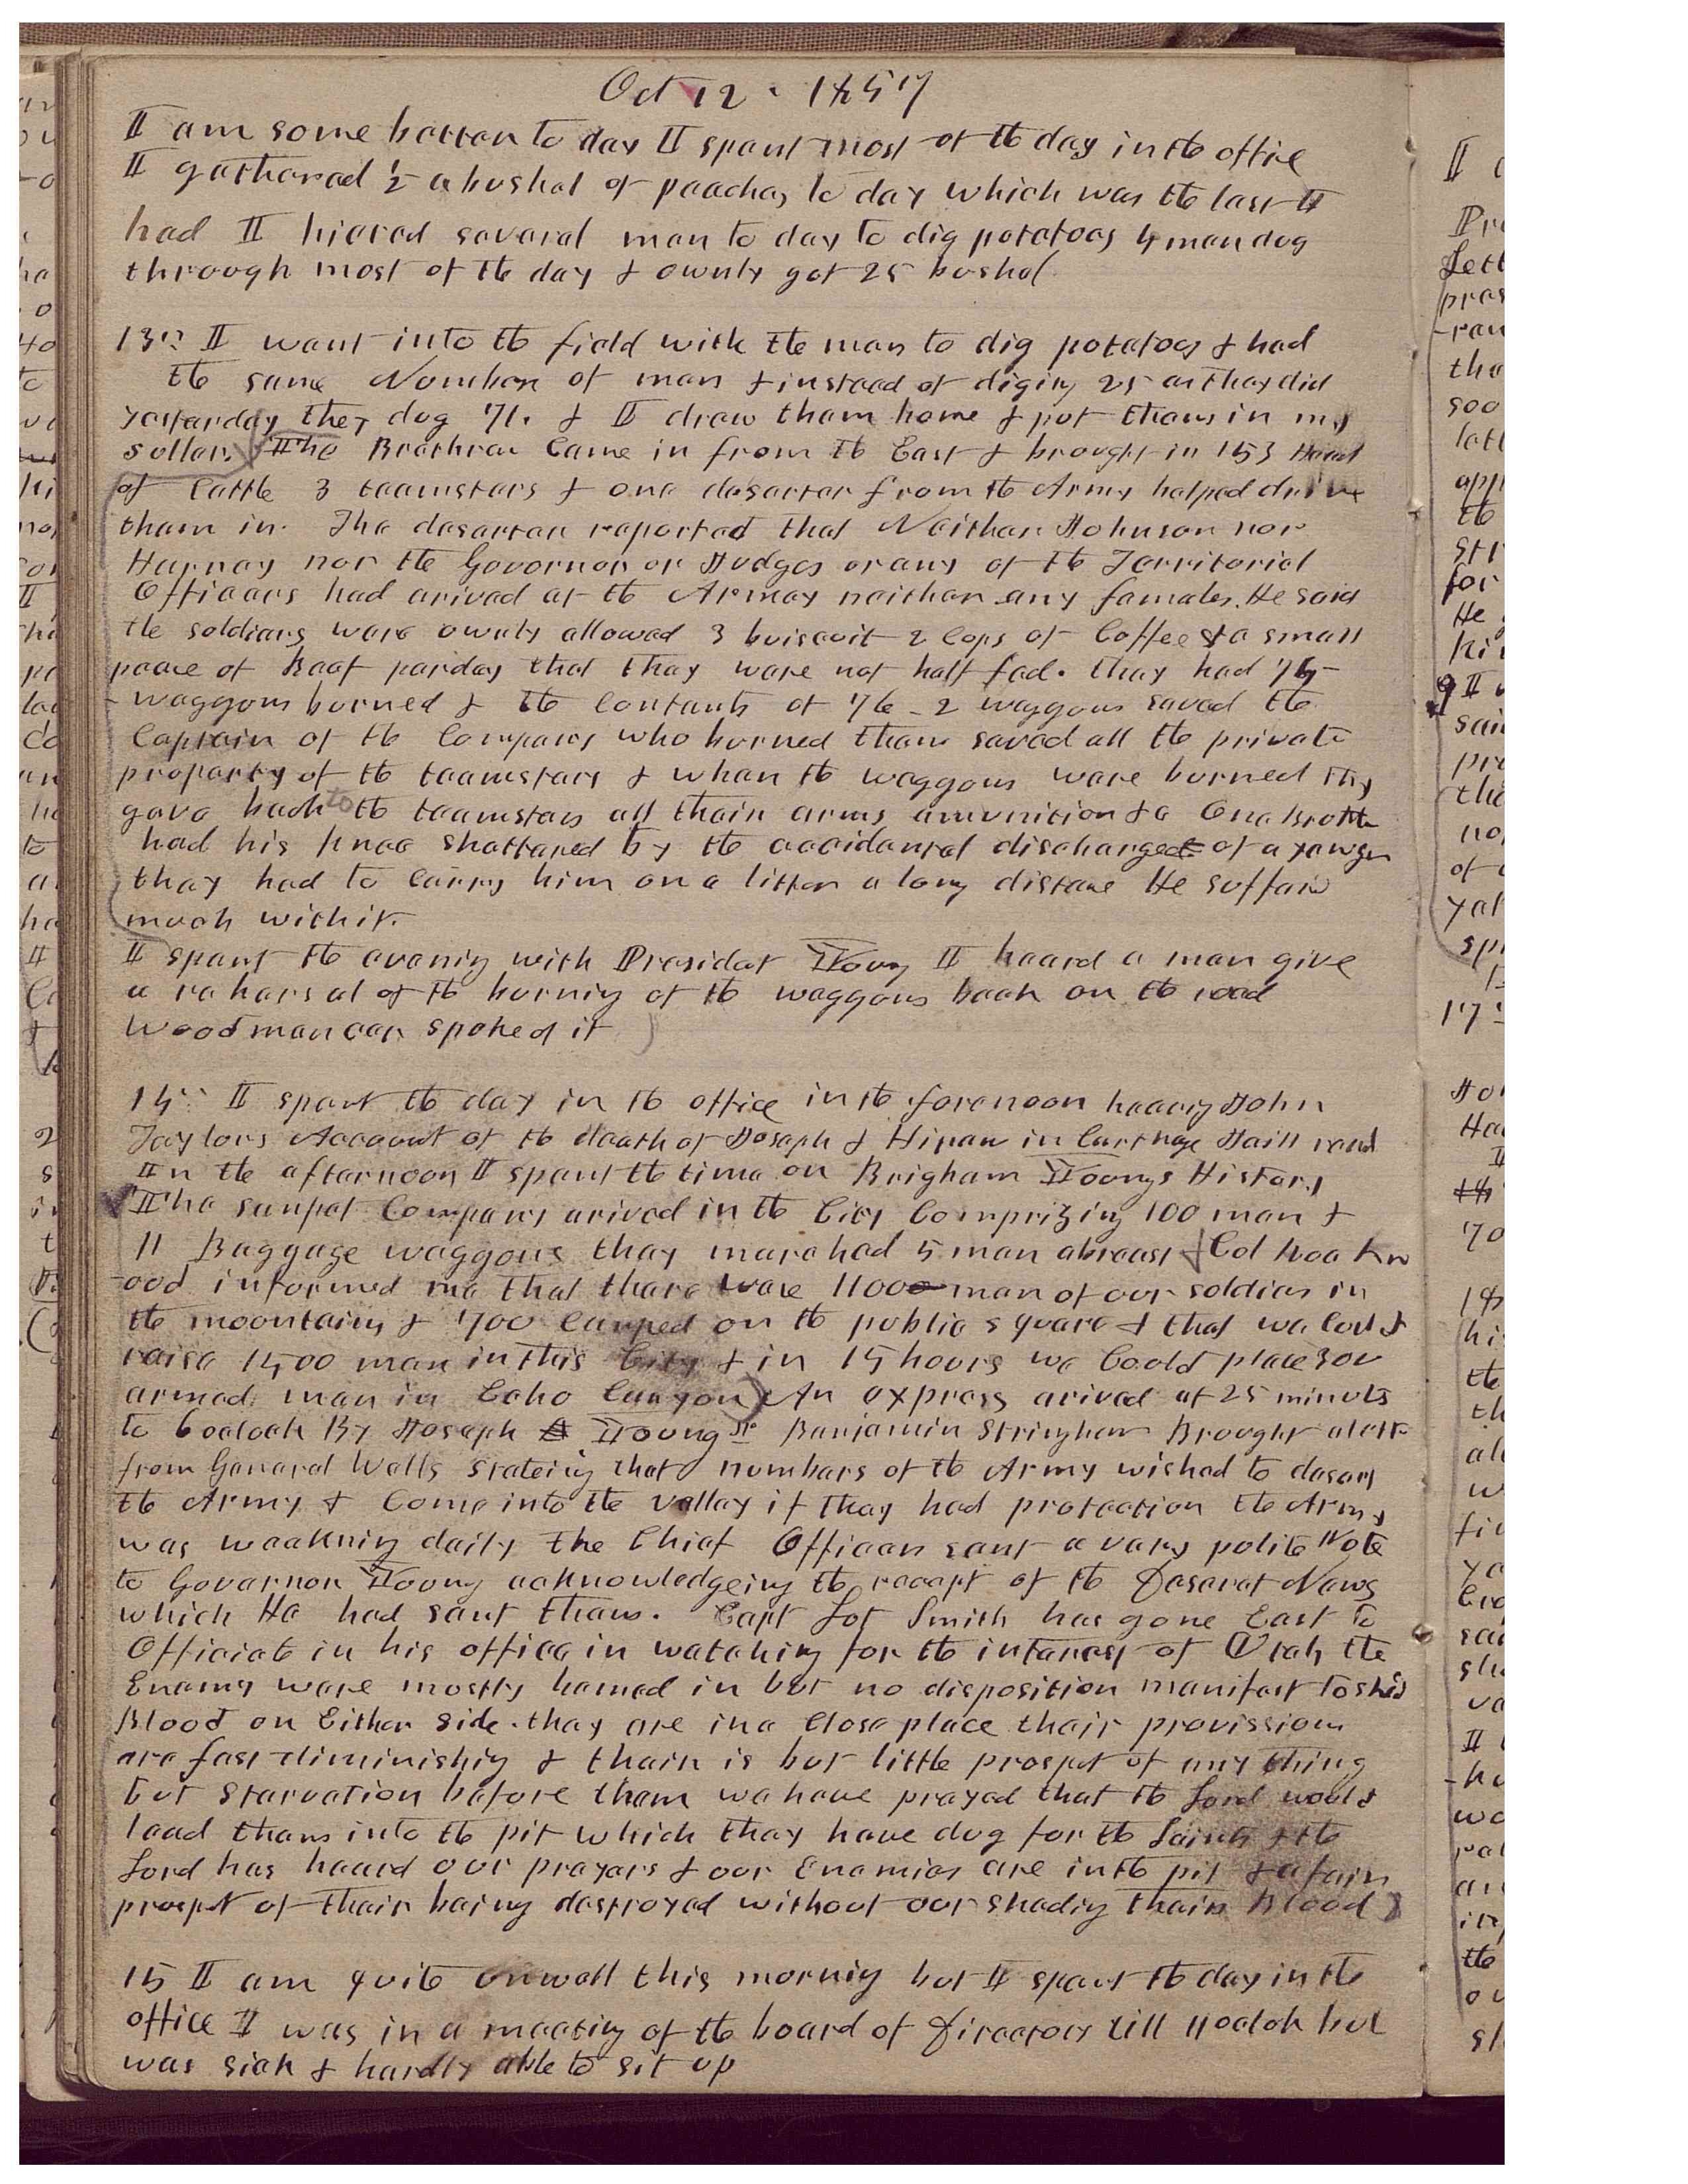 Oct 12. 1857
I am some better to day I spent most of the day in the office
I gathered ½ a bushel of peaches to day which was the last I
had I hiered several men to day to dig potatoes 4 men dug
through most of the day & ownly got 25 bushel
13th I went into the field with the men to dig potatoes & had
the same Number of men & instead of diging 25 as they did
yesterday they dug 71. & I drew them home & put them in my
sellar. The Brethren Came in from the East & brought in 153 Head
of Cattle 3 teamsters & one desarter from the Army helped drive
them in. The desarter reported that Neither Johnson nor
Harney nor the Governor or Judges or any of the Territorial
Officers had arived at the Armey neither any females. He said
the soldiers ware ownly allowed 3 buiscuit 2 Cups of Coffee & a small
peace of Beef per day that they ware not half fed. they had 76
waggons burned & the Contents of 76 - 2 waggons saved the
Captain of the Company who burned them saved all the private
property of the teamsters & when the waggons ware burned they
gave back to the teamsters all their arms amunition &c One Brother
had his knee shattered by the accidental discharge of a yawger
they had to Carry him on a litter a long distance He suffered
much with it.
I spent the evening with President Young I heard a man give
a rehearsal of the burning of the waggons back on the road
Woodmancee spoked it
14th I spent the day in the office in the forenoon hearing John
Taylors Account of the death of Joseph & Hiram in Carthage Jaill read
In the afternoon I spent the time on Brigham Youngs History
The sanpet Company arived in the City Comprizing 100 men &
11 Baggage waggons they marched 5 men abreast Col
-ood informed me that there ware 1100 men of our soldiers in
the mountains & 700 Camped on the public square & that we Could
raise 1400 men in this City & in 15 hours we Could place 300
armed men in Echo Canyon) An express arived at 25 minuts
to 6 oclock By Joseph A Young Sr Benjamin Stringham Brought a lettr
from General Wells stateing that numbers of the Army wished to desart
the Army & Come into the valley if they had protection the Army
was weakning daily the Chief Officer sent a very polite Note
to Governor Young acknowledgeing the recept of the Deseret News
which He had sent them. Capt Lot Smith has gone East to
Officiate in his office in watching for the interest of Utah the
Enemy ware mostly hemed in but no disposition manifest to shed
Blood on Either side. they are in a Close place their provissions
are fast diminishing & their is but little prospet of any thing
but Starvation before them we have prayed that the Lord would
lead them into the pit which they have dug for the Saints & the
Lord has heard our prayers & our Enemies are in the pit & a fair
prospet of their being destroyed without our sheding their Blood)
15 I am quite unwell this morning but I spent the day in the
office I was in a meeting of the board of Directors till 11 oclok but
was sick & hardly able to sit up